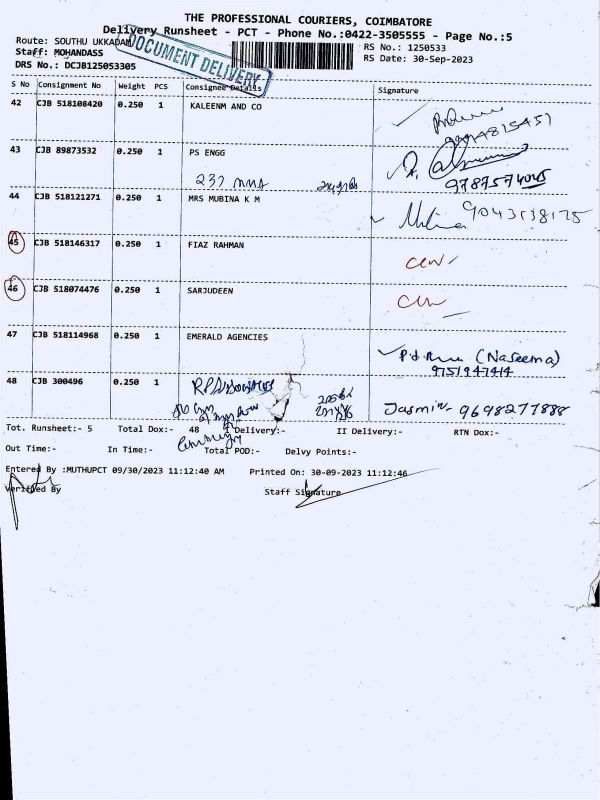 THE PROFESSIONAL COURIERS, COIMBATORE
Delivery Runsheet - PCT - Phone No.:0422-3505555 - Page No.:5
Route: SOUTHU UKKADAM
RS No.: 1250533
Staff: MOHANDASS
RS Date: 30-Sep-2023
DRS No.: DCJB125053305
DOCUMENT DELIVERY
S No Consignment No Weight PCS Consignee Details Signature
42 CJB 518108420 0.250 1 KALEENM AND CO
43 CJB 89873532 0.250 1 PS ENGG
237
44 CJB 518121271 0.250 1 MRS MUBINA K M
45 CJB 518146317 0.250 1 FIAZ RAHMAN
46 CJB 518074476 0.250 1 SARJUDEEN
47 CJB 518114968 0.250 1 EMERALD AGENCIES
(Naseema)
9751947414
48 CJB 300496 0.250 1
Jasmin 9698277888
Tot. Runsheet:- 5 Total Dox:- 48 I Delivery:- II Delivery:- RTN Dox:-
Out Time:- In Time:- Total POD:- Delvy Points:-
Entered By :MUTHUPCT 09/30/2023 11:12:40 AM Printed On: 30-09-2023 11:12:46
Verified By Staff Signature